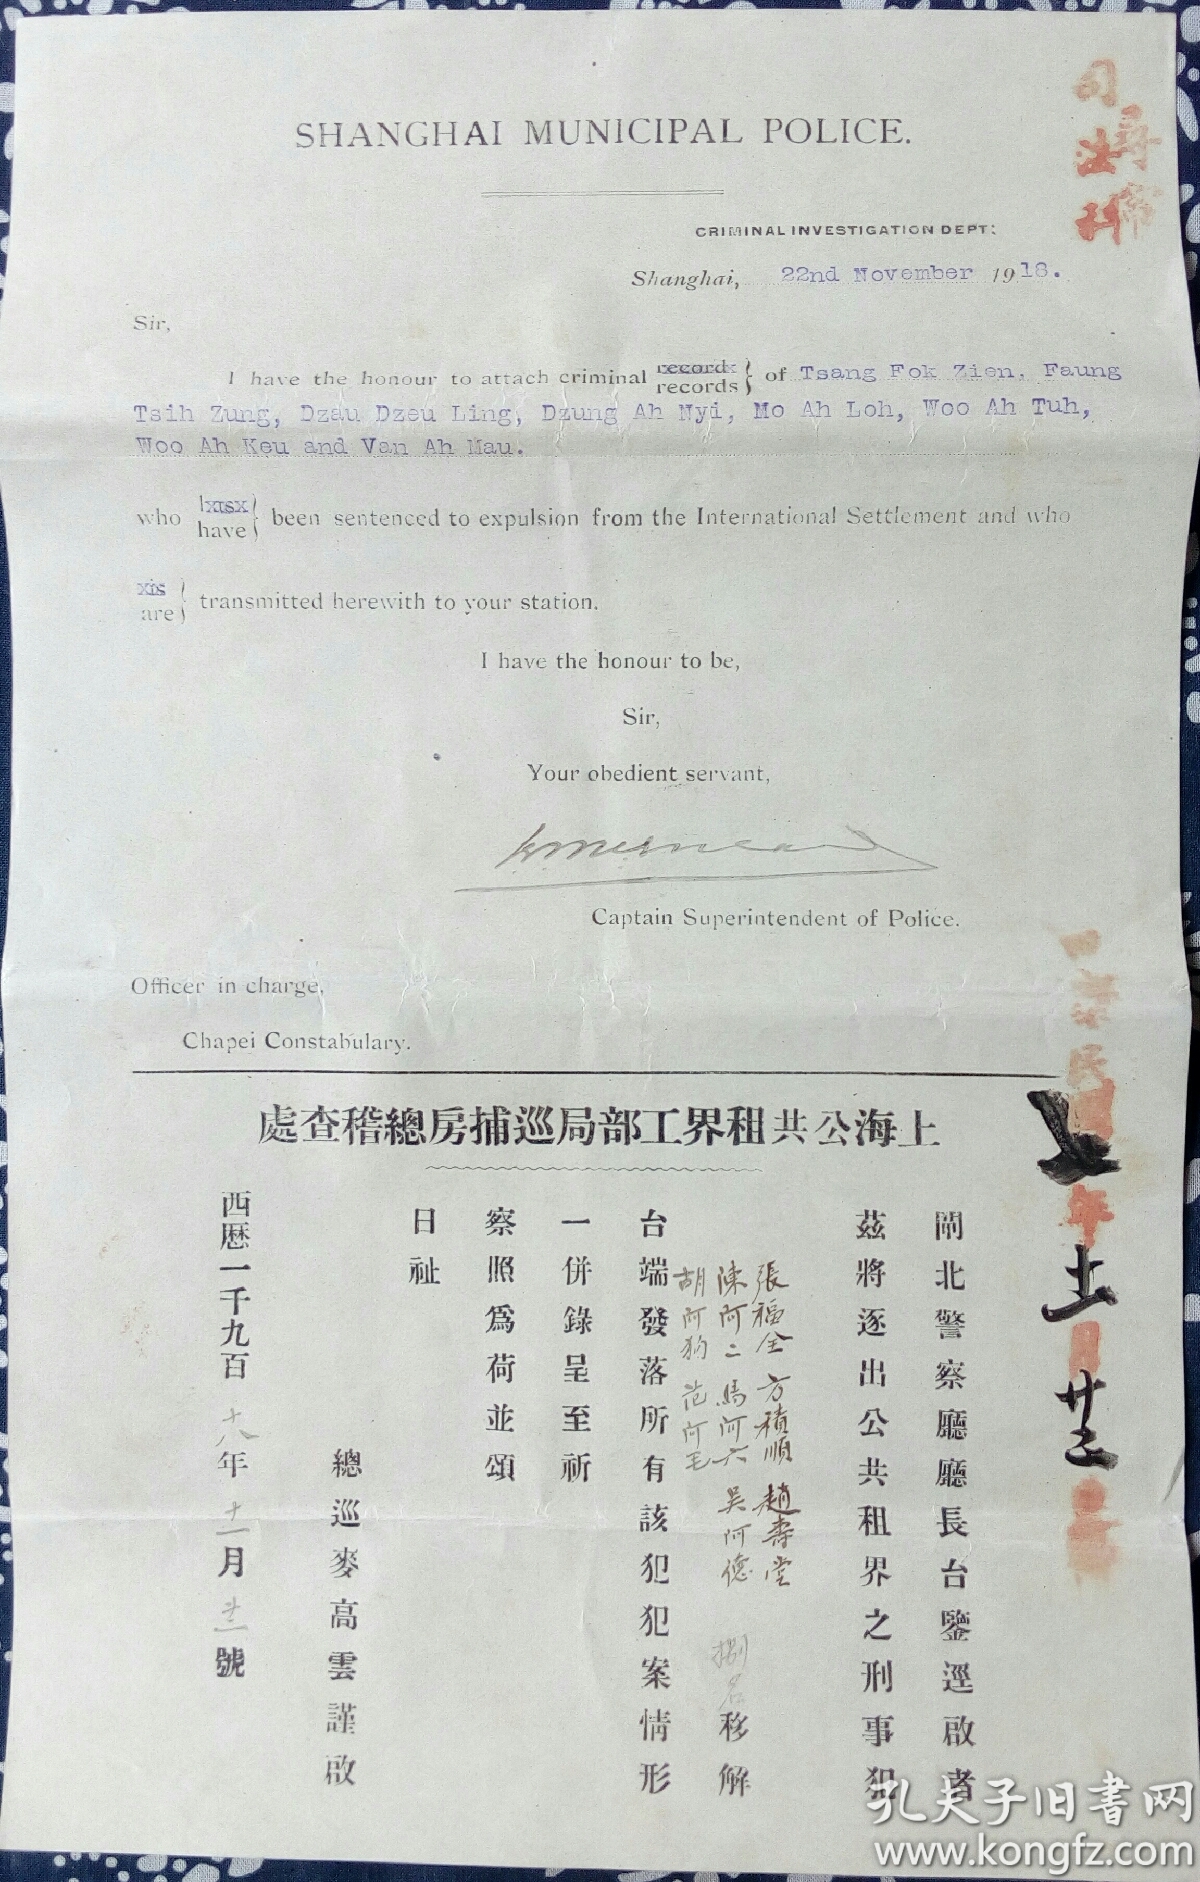 SHANGHAI MUNICIPAL POLICE.
CRIMINAL INVESTIGATION DEPT:
Shanghai, 22nd November 1918.
Sir,
I have the honour to attach criminal record records } of Tsang Fok Zien, Faung
Tsih Zung, Dzau Dzeu Ling, Dzung Ah Nyi, Mo Ah Loh, Woo Ah Tuh,
Woo Ah Keu and Van Ah Mau.
who has have } been sentenced to expulsion from the International Settlement and who
is are } transmitted herewith to your station.
I have the honour to be,
Sir,
Your obedient servant,
Captain Superintendent of Police.
Officer in charge,
Chapei Constabulary.
上海公共租界工部局巡捕房總稽查處
閘北警察廳廳長台鑒逕啟者
茲將逐出公共租界之刑事犯
張福全 方積順 趙壽堂
陳阿二 馬阿六 吳阿德 捌名移解
胡阿狗 范阿毛
台端發落所有該犯犯案情形
一併錄呈至祈
察照爲荷並頌
日祉
總巡麥高雲謹啟
西曆一千九百十八年十一月廿二號
司法科
民國七年十一月廿二
孔夫子旧书网
www.kongfz.com